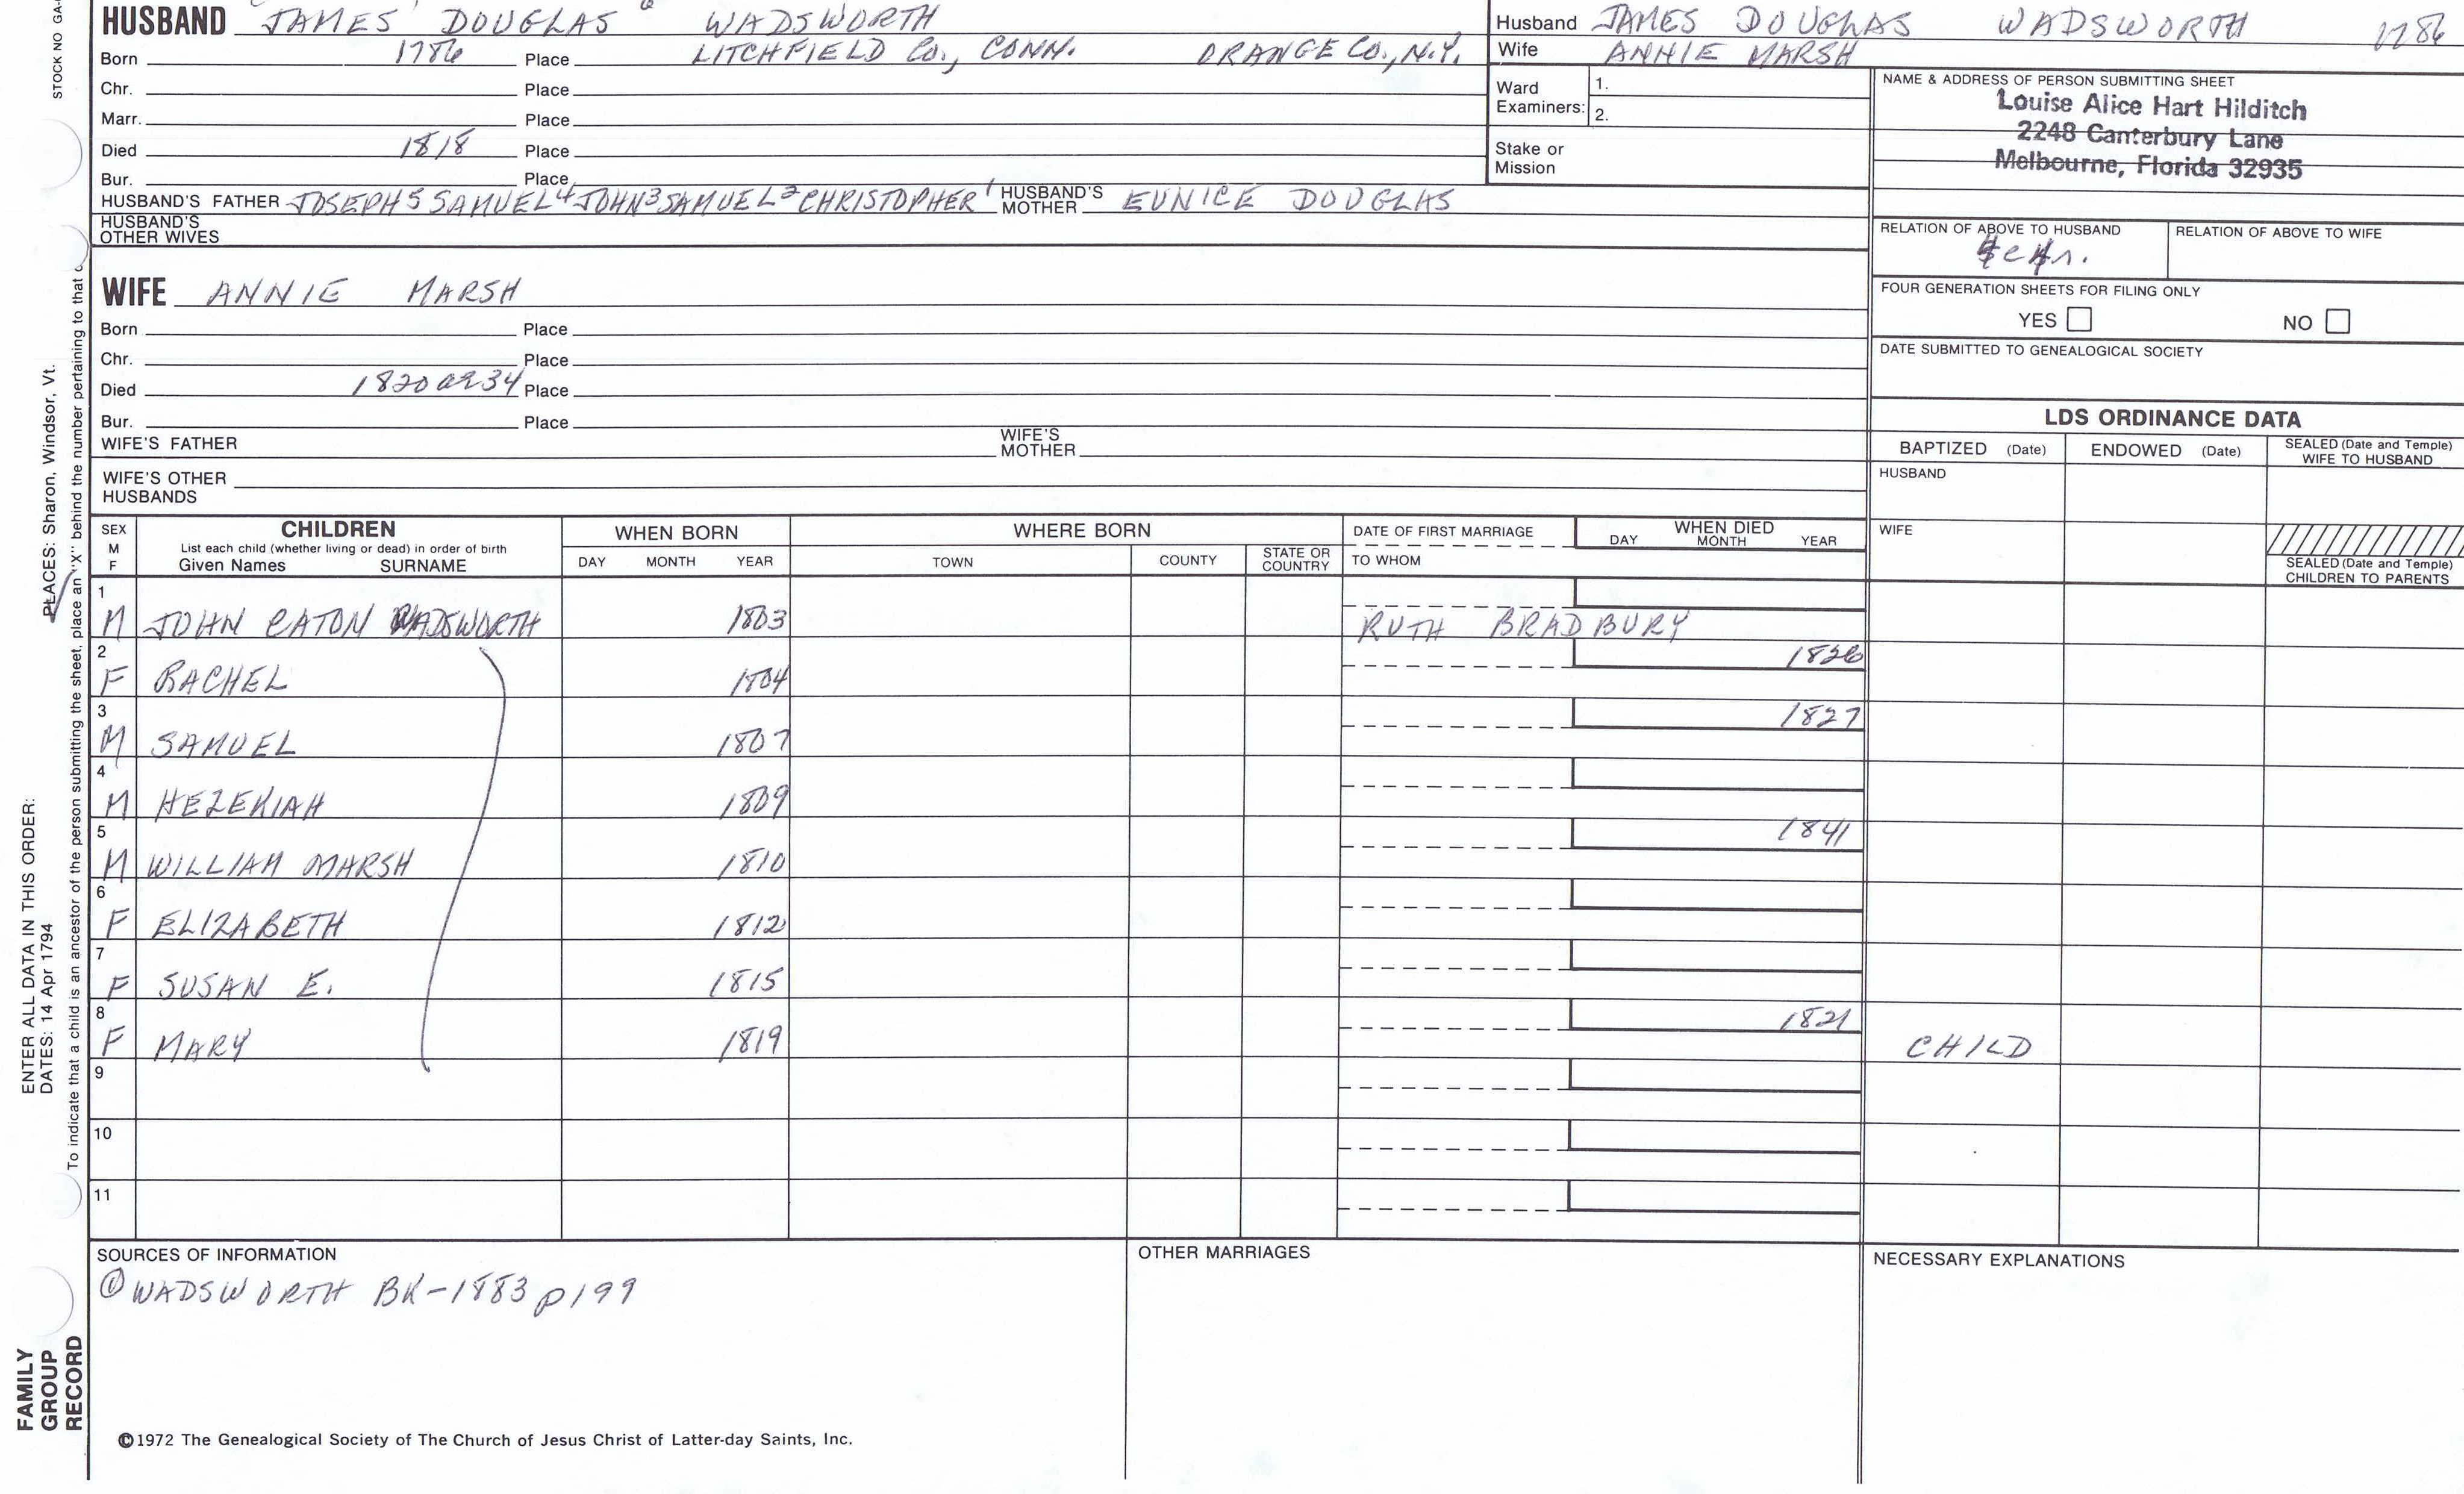 STOCK NO GA
HUSBAND JAMES DOUGLAS 6 WADSWORTH
Born 1786 Place LITCHFIELD Co., CONN. ORANGE CO., N.Y.
Chr. Place
Marr. Place
Died 1818 Place
Bur. Place
HUSBAND'S FATHER JOSEPH5 SAMUEL4 JOHN3 SAMUEL2 CHRISTOPHER1 HUSBAND'S MOTHER EUNICE DOUGLAS
HUSBAND'S OTHER WIVES
WIFE ANNIE MARSH
Born Place
Chr. Place
Died 1820 a234 Place
Bur. Place
WIFE'S FATHER WIFE'S MOTHER
WIFE'S OTHER HUSBANDS
Husband JAMES DOUGLAS WADSWORTH 1786
Wife ANNIE MARSH
Ward Examiners: 1.
2.
Stake or Mission
NAME & ADDRESS OF PERSON SUBMITTING SHEET
Louise Alice Hart Hilditch
2248 Canterbury Lane
Melbourne, Florida 32935
RELATION OF ABOVE TO HUSBAND RELATION OF ABOVE TO WIFE
FOUR GENERATION SHEETS FOR FILING ONLY
YES NO
DATE SUBMITTED TO GENEALOGICAL SOCIETY
LDS ORDINANCE DATA
BAPTIZED (Date) ENDOWED (Date) SEALED (Date and Temple) WIFE TO HUSBAND
HUSBAND
WIFE
SEALED (Date and Temple) CHILDREN TO PARENTS
SEX M F CHILDREN WHEN BORN WHERE BORN DATE OF FIRST MARRIAGE WHEN DIED
List each child (whether living or dead) in order of birth
Given Names SURNAME DAY MONTH YEAR TOWN COUNTY STATE OR COUNTRY TO WHOM DAY MONTH YEAR
1 M JOHN EATON WADSWORTH 1803 RUTH BRADBURY
2 F RACHEL 1804 1826
3 M SAMUEL 1807 1827
4 M HEZEKIAH 1809
5 M WILLIAM MARSH 1810 1841
6 F ELIZABETH 1812
7 F SUSAN E. 1815
8 F MARY 1819 1821 CHILD
9
10
11
SOURCES OF INFORMATION
① WADSWORTH BK-1883 p199
OTHER MARRIAGES
NECESSARY EXPLANATIONS
©1972 The Genealogical Society of The Church of Jesus Christ of Latter-day Saints, Inc.
FAMILY
GROUP
RECORD
ENTER ALL DATA IN THIS ORDER:
DATES: 14 Apr 1794 PLACES: Sharon, Windsor, Vt.
To indicate that a child is an ancestor of the person submitting the sheet, place an "X" behind the number pertaining to that